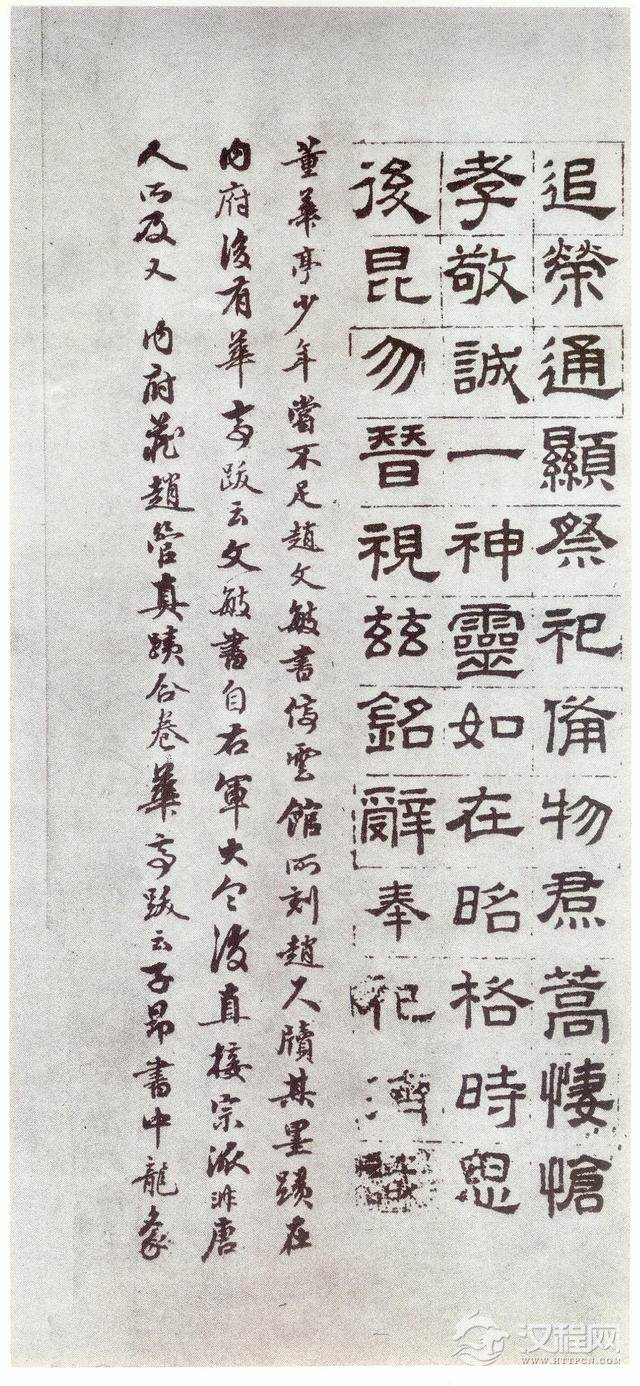 追榮通顯祭祀備物焄蒿悽愴
孝敬誠一神靈如在昭格時思
後昆勿替視茲銘辭奉祀
董華亭少年嘗不足趙文敏書停雲館所刻趙尺牘其墨蹟在
内府後有華亭跋云文敏書自右軍大令後直接宗派非唐
人所及又 内府藏趙管真蹟合卷華亭跋云子昂書中龍象
汉程网
WWW.HTTPCN.COM